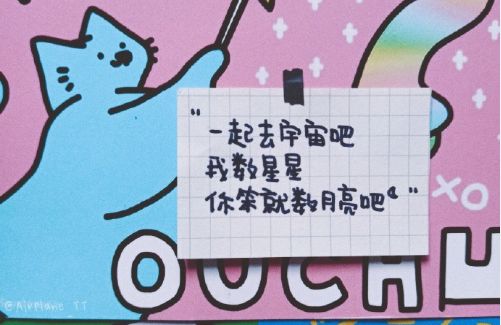 "一起去宇宙吧
我数星星
你笨就数月亮吧"
XO
OUCH
@Airplane TT